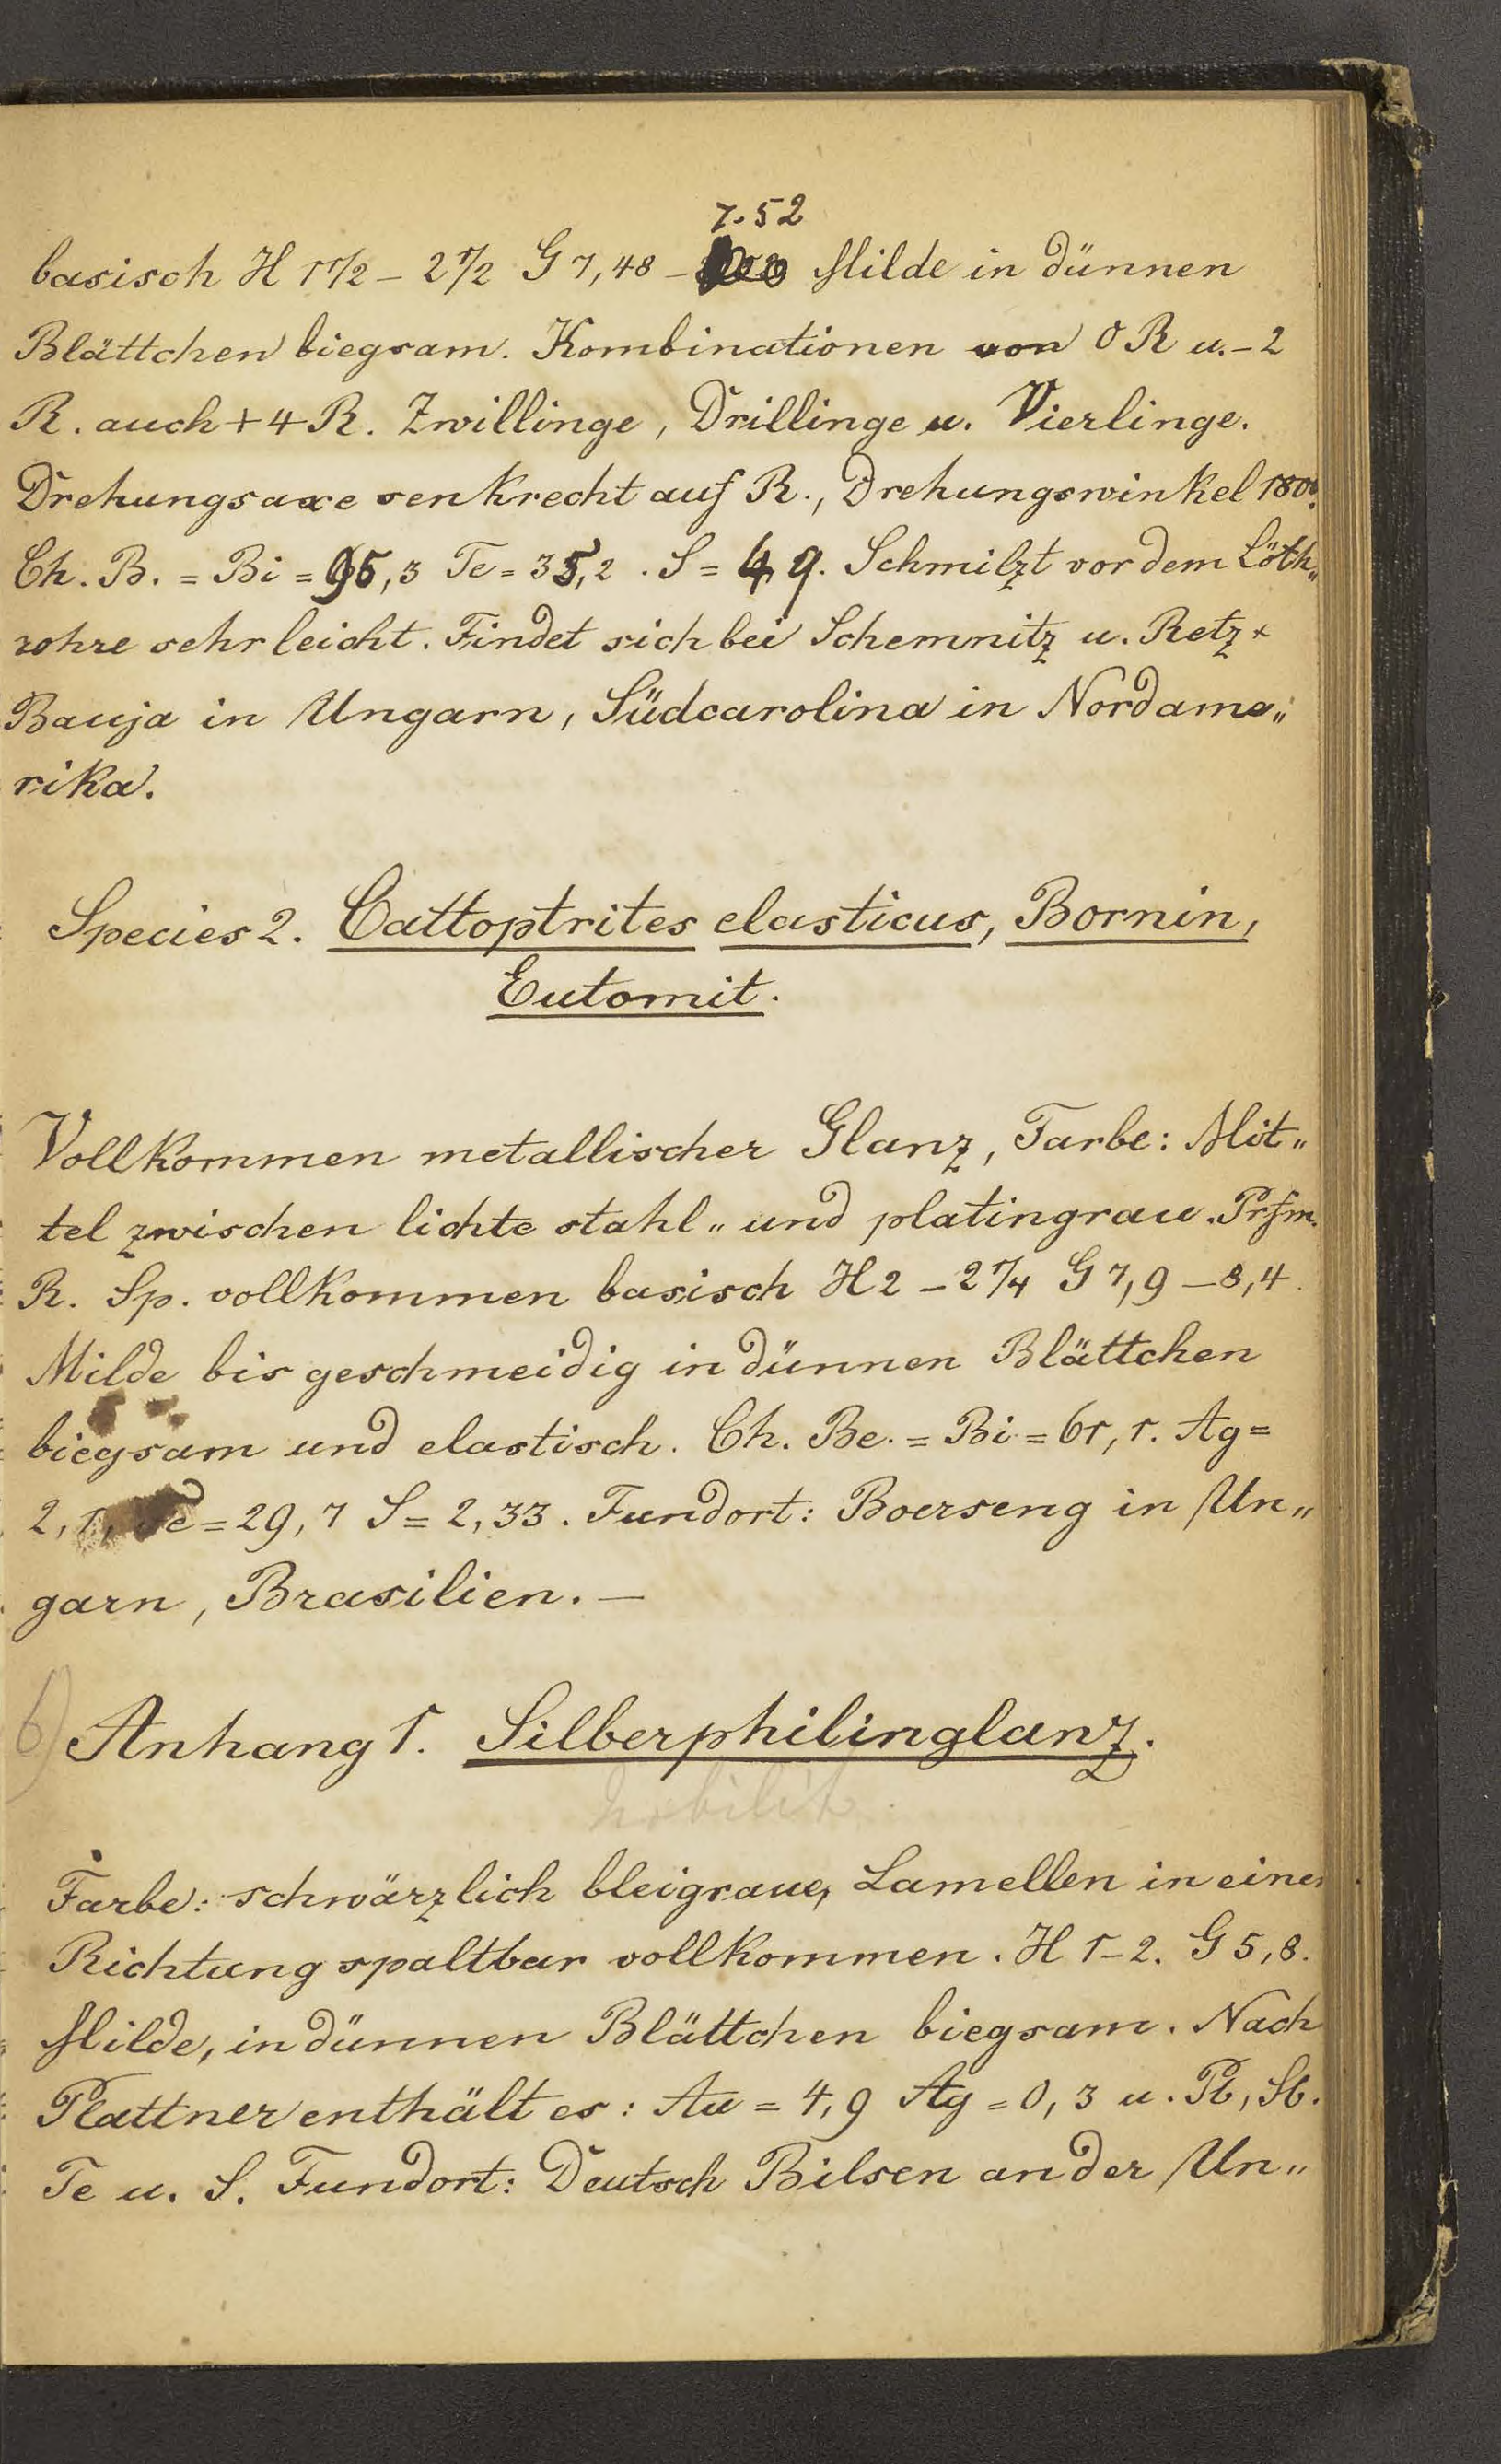 7.52
basisch H 1 1/2 – 2 1/2 G 7,48 – Milde in dünnen
Blättchen biegsam. Kombinationen von 0 R u. – 2
R. auch + 4 R. Zwillinge, Drillinge u. Vierlinge.
Drehungsaxe senkrecht auf R., Drehungswinkel 180°.
Ch. B. = Bi = ,3 Te = 35,2 . S = 4,9. Schmilzt vor dem Löth„
rohre sehr leicht. Findet sich bei Schemnitz u. Retz
Bauja in Ungarn, Südcarolina in Nordame„
rika.
Species 2. Cattoptrites elasticus, Bornin,
Eutomit.
Vollkommen metallischer Glanz, Farbe: Mit„
tel zwischen lichte stahl„ und platingrau. Prsm.
R. Sp. vollkommen basisch H 2 – 2 1/4 G 7,9 – 8,4.
Milde bis geschmeidig in dünnen Blättchen
biegsam und elastisch. Ch. Be. = Bi = 61,1. Ag =
2,1, Te = 29,7 S = 2,33. Fundort: Boerseng in Un„
garn, Brasilien. —
6) Anhang 1. Silberphilinglanz.
Farbe: schwärzlich bleigraue, Lamellen in einer
Richtung spaltbar vollkommen. H 1–2. G 5,8.
Milde, in dünnen Blättchen biegsam. Nach
Plattner enthält es: Au = 4,9 Ag = 0,3 u. Pb, Sb.
Te u. S. Fundort: Deutsch Pilsen an der Un„